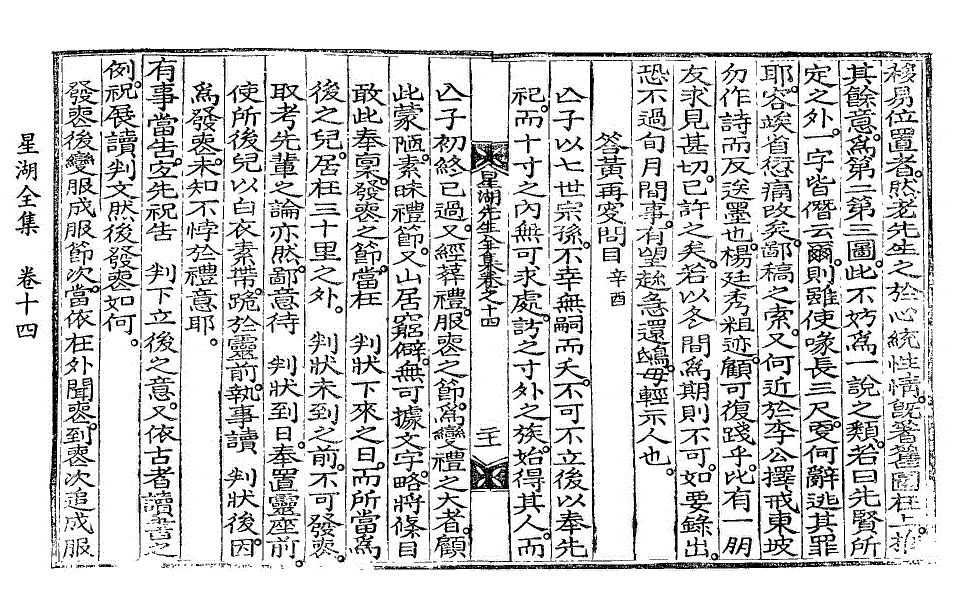 移易位置者。然老先生之於心統性情。旣著舊圖在上。推
其餘意。爲第二第三圖。此不妨爲一說之類。若曰先賢所
定之外。一字皆僭云爾。則雖使喙長三尺。更何辭逃其罪
耶。容竢省愆痛改。炙鄙稿之索。又何近於李公擇戒東坡
勿作詩而反送墨也。楊廷秀粗迹。顧可復踐乎。比有一朋
友求見甚切。已許之矣。若以冬間爲期則不可。如要錄出。
恐不過旬月間事。有望趂急還鴟。毋輕示人也。
答黃再叟問目 辛酉
亾子以七世宗孫。不幸無嗣而夭。不可不立後以奉先
祀。而十寸之內無可求處。訪之寸外之族。始得其人。而
星湖先生全集卷之十四 二十
亾子初終已過。又經葬禮。服喪之節。爲變禮之大者。顧
此蒙陋。素昧禮節。又山居窮僻。無可據文字。略將條目
敢此奉稟。發喪之節。當在 判狀下來之日。而所當爲
後之兒。居在三十里之外。 判狀未到之前。不可發喪。
取考先輩之論亦然。鄙意待 判狀到日。奉置靈座前
使所後兒以白衣素帶。跪於靈前。執事讀 判狀後。因
爲發喪。未知不悖於禮意耶。
有事當告。宜先祝告 判下立後之意。又依古者讀書之
例。祝展讀判文。然後發喪如何。
發喪後變服成服節次。當依在外聞喪。到喪次追成服
星湖全集 卷十四